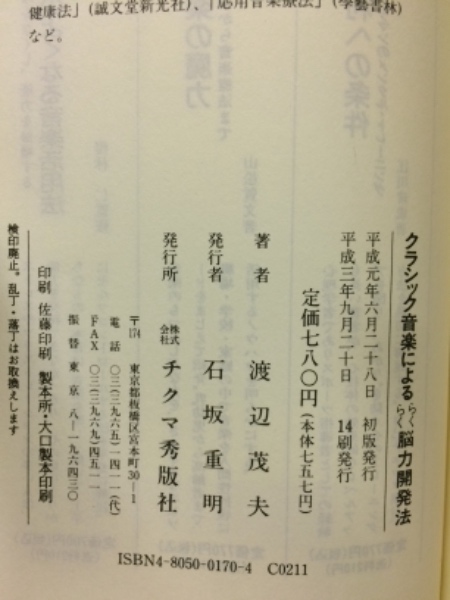 健康法」（誠文堂新光社）、「応用音楽療法」（學藝書林）
など。
クラシック音楽によるらくらく脳力開発法
平成元年六月二十八日　初版発行
平成三年九月二十日　14刷発行
定価七八〇円（本体七五七円）
著者　渡辺茂夫
発行者　石坂重明
発行所　株式会社チクマ秀版社
〒174　東京都板橋区宮本町30―1
電話　〇三（三九六五）一四一一（代）
FAX　〇三（三九六九）四五一一
振替東京　八―一九六四三〇
印刷　佐藤印刷　製本所・大口製本印刷
検印廃止。乱丁・落丁はお取換えします
ISBN4-8050-0170-4　C0211